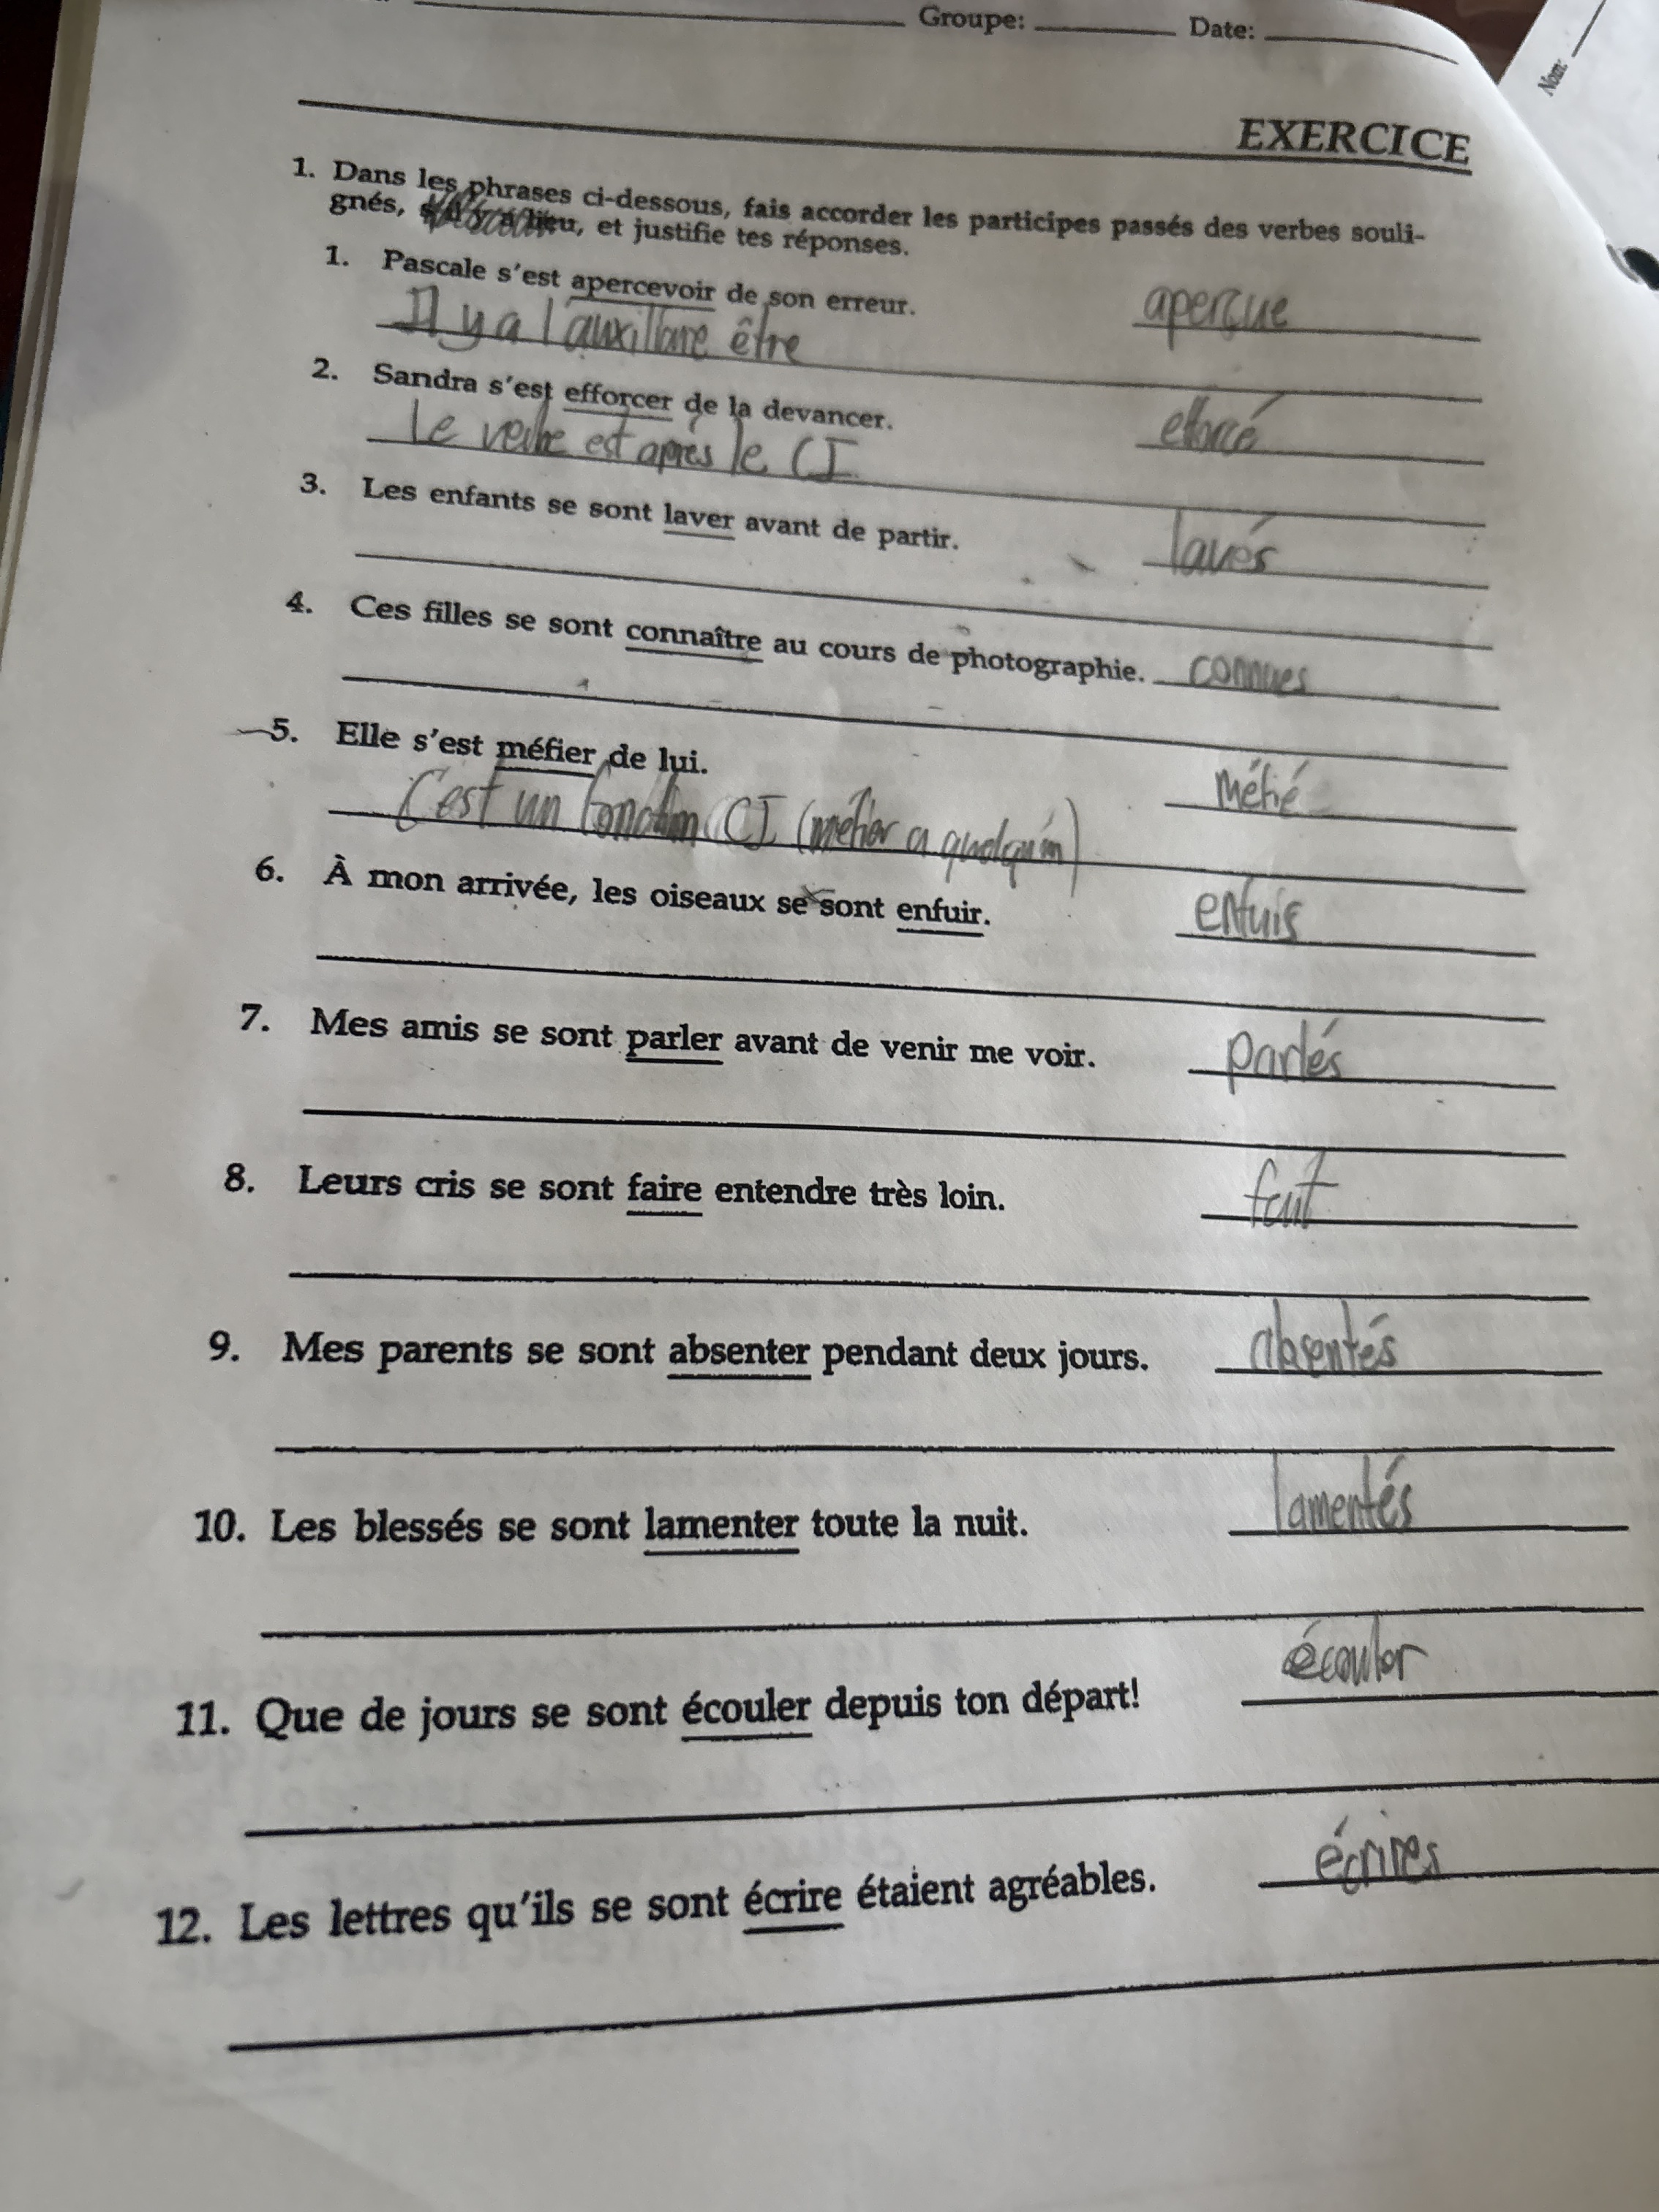 Groupe: Date:
Nom:
EXERCICE
1. Dans les phrases ci-dessous, fais accorder les participes passés des verbes souli-
gnés, s'il y a lieu, et justifie tes réponses.
1. Pascale s'est apercevoir de son erreur. aperçue
Il y a l'auxillare être
2. Sandra s'est efforcer de la devancer. efforcé
le verbe est après le CI
3. Les enfants se sont laver avant de partir. lavés
4. Ces filles se sont connaître au cours de photographie. connues
5. Elle s'est méfier de lui. méfié
C'est un fonction CI (méfier a quelqu'un)
6. À mon arrivée, les oiseaux se sont enfuir. enfuis
7. Mes amis se sont parler avant de venir me voir. parlés
8. Leurs cris se sont faire entendre très loin. fait
9. Mes parents se sont absenter pendant deux jours. absentés
10. Les blessés se sont lamenter toute la nuit. lamentés
11. Que de jours se sont écouler depuis ton départ! écouler
12. Les lettres qu'ils se sont écrire étaient agréables. écrires